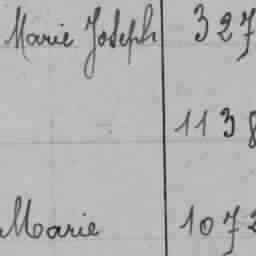 Marie Joseph 327
1138
Marie 1072